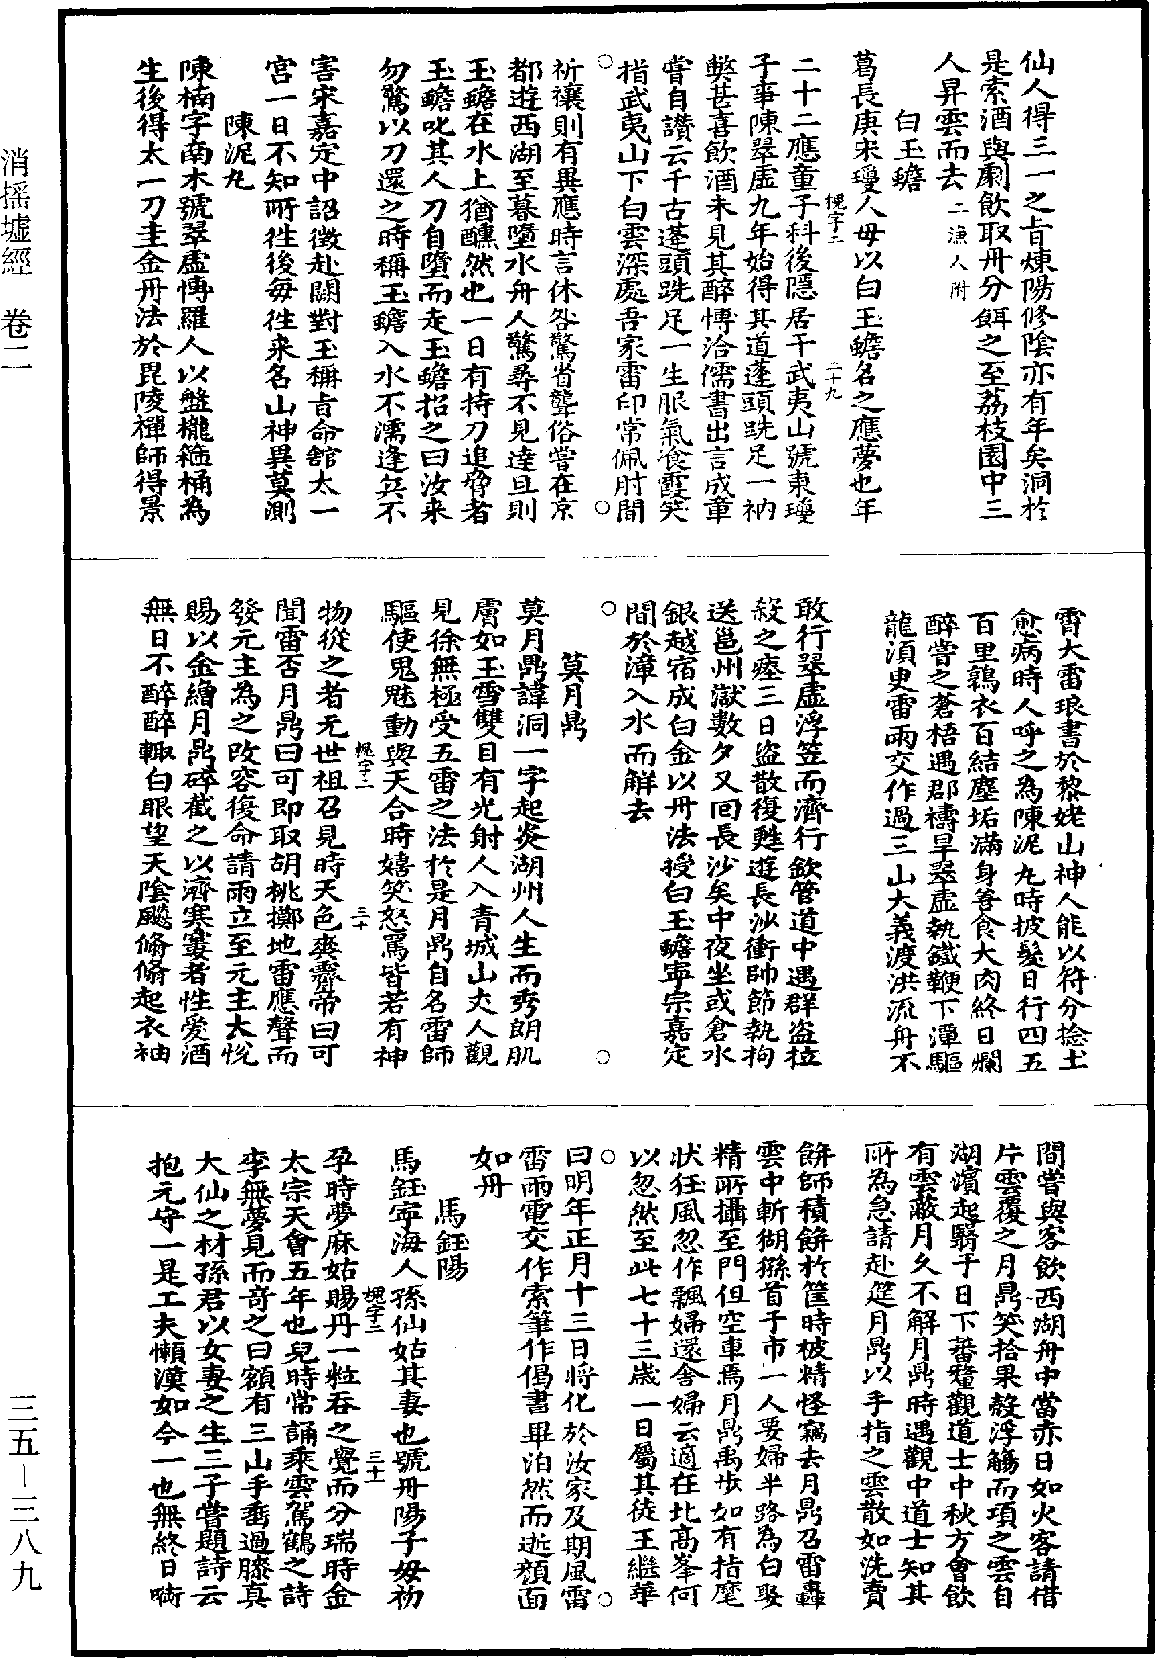 消搖墟經　卷二
仙人得三一之旨煉陽修陰亦有年矣洞於
是索酒與劇飲取丹分餌之至荔枝園中三
人昇雲而去二漁人附
白玉蟾
葛長庚宋瓊人母以白玉蟾名之應夢也年
槐字二
二十九
二十二應童子科後隱居于武夷山號東瓊
子事陳翠虛九年始得其道蓬頭跣足一衲
弊甚喜飲酒未見其醉博洽儒書出言成章
嘗自讚云千古蓬頭跣足一生服氣飡霞笑
指武夷山下白雲深處吾家雷印常佩肘間
祈禳則有異應時言休咎驚省聾俗嘗在京
都遊西湖至暮墮水舟人驚尋不見達旦則
玉蟾在水上猶醺然也一日有持刀追脅者
玉蟾叱其人刀自墮而走玉蟾招之曰汝來
勿驚以刀還之時稱玉蟾入水不濡逢兵不
害宋嘉定中詔徵赴闕對玉稱旨命舘太一
宮一日不知所往後每往來名山神異莫測
陳泥丸
陳楠字南木號翠虛博羅人以盤櫳箍桶為
生後得太一刀圭金丹法於毘陵禪師得景
霄大雷琅書於黎姥山神人能以符分捻土
愈病時人呼之為陳泥丸時披髮日行四五
百里鶉衣百結塵垢滿身善食犬肉終日爛
醉嘗之蒼梧遇郡禱旱翠虛執鐵鞭下潭驅
龍須臾雷雨交作過三山大義渡洪流舟不
敢行翠虛浮笠而濟行欽管道中遇群盜拉
殺之瘞三日盜散復甦遊長沙衝帥節執拘
送邕州獄數夕又回長沙矣中夜坐或倉水
銀越宿成白金以丹法授白玉蟾寧宗嘉定
間於漳入水而解去
莫月鼎
莫月鼎諱洞一字起炎湖州人生而秀朗肌
膚如玉雪雙目有光射人入青城山丈人觀
見徐無極受五雷之法於是月鼎自名雷師
驅使鬼魅動與天合時嬉笑怒罵皆若有神
槐字二
三十
物從之者元世祖召見時天色爽霽帝曰可
聞雷否月鼎曰可即取胡桃擲地雷應聲而
發元主為之改容復命請雨立至元主大悅
賜以金繒月鼎碎截之以濟寒窶者性愛酒
無日不醉醉輒白眼望天陰飈翛翛起衣袖
間嘗與客飲西湖舟中當赤日如火客請借
片雲覆之月鼎笑拾果殼浮觴而頃之雲自
湖濱起翳于日下蕃釐觀道士中秋方會飲
有雲蔽月久不解月鼎時遇觀中道士知其
所為急請赴筵月鼎以手指之雲散如洗賣
餅師積餅於筐時被精怪竊去月鼎召雷轟
雲中斬猢猻首于市一人要婦半路為白娶
精所攝至門但空車焉月鼎禹步如有指麾
狀狂風忽作飄婦還舍婦云適在北高峯何
以忽然至此七十三歲一日屬其徒王繼華
曰明年正月十三日將化於汝家及期風雷
雷雨電交作索筆作偈書畢泊然而逝顏面
如丹
馬鈺陽
馬鈺寧海人孫仙姑其妻也號丹陽子母初
槐字二
三十一
孕時夢麻姑賜丹一粒吞之覺而分瑞時金
太宗天會五年也兒時常誦乘雲駕鶴之詩
李無夢見而奇之曰額有三山手垂過膝真
大仙之材孫君以女妻之生三子嘗題詩云
抱元守一是工夫懶漢如今一也無終日啣
三五—三八九